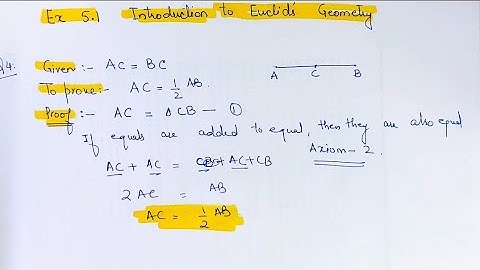 Ex 5.1 Introduction to Euclid's Geometry
Q4.
Given :- AC = BC
A C B
To prove:- AC = 1/2 AB.
Proof :- AC = CB — ①
If equals are added to equal, then they are also equal
Axiom-2.
AC + AC = AC + CB
2AC = AB
AC = 1/2 AB